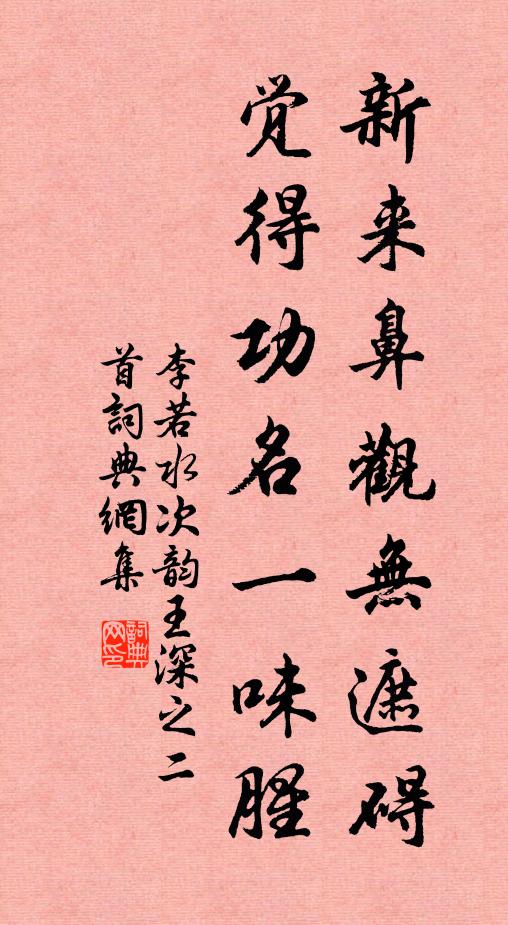 新来鼻觀無遮碍
觉得功名一味腥
李若水次韵王深之二
首詞典網集
詞典
网印